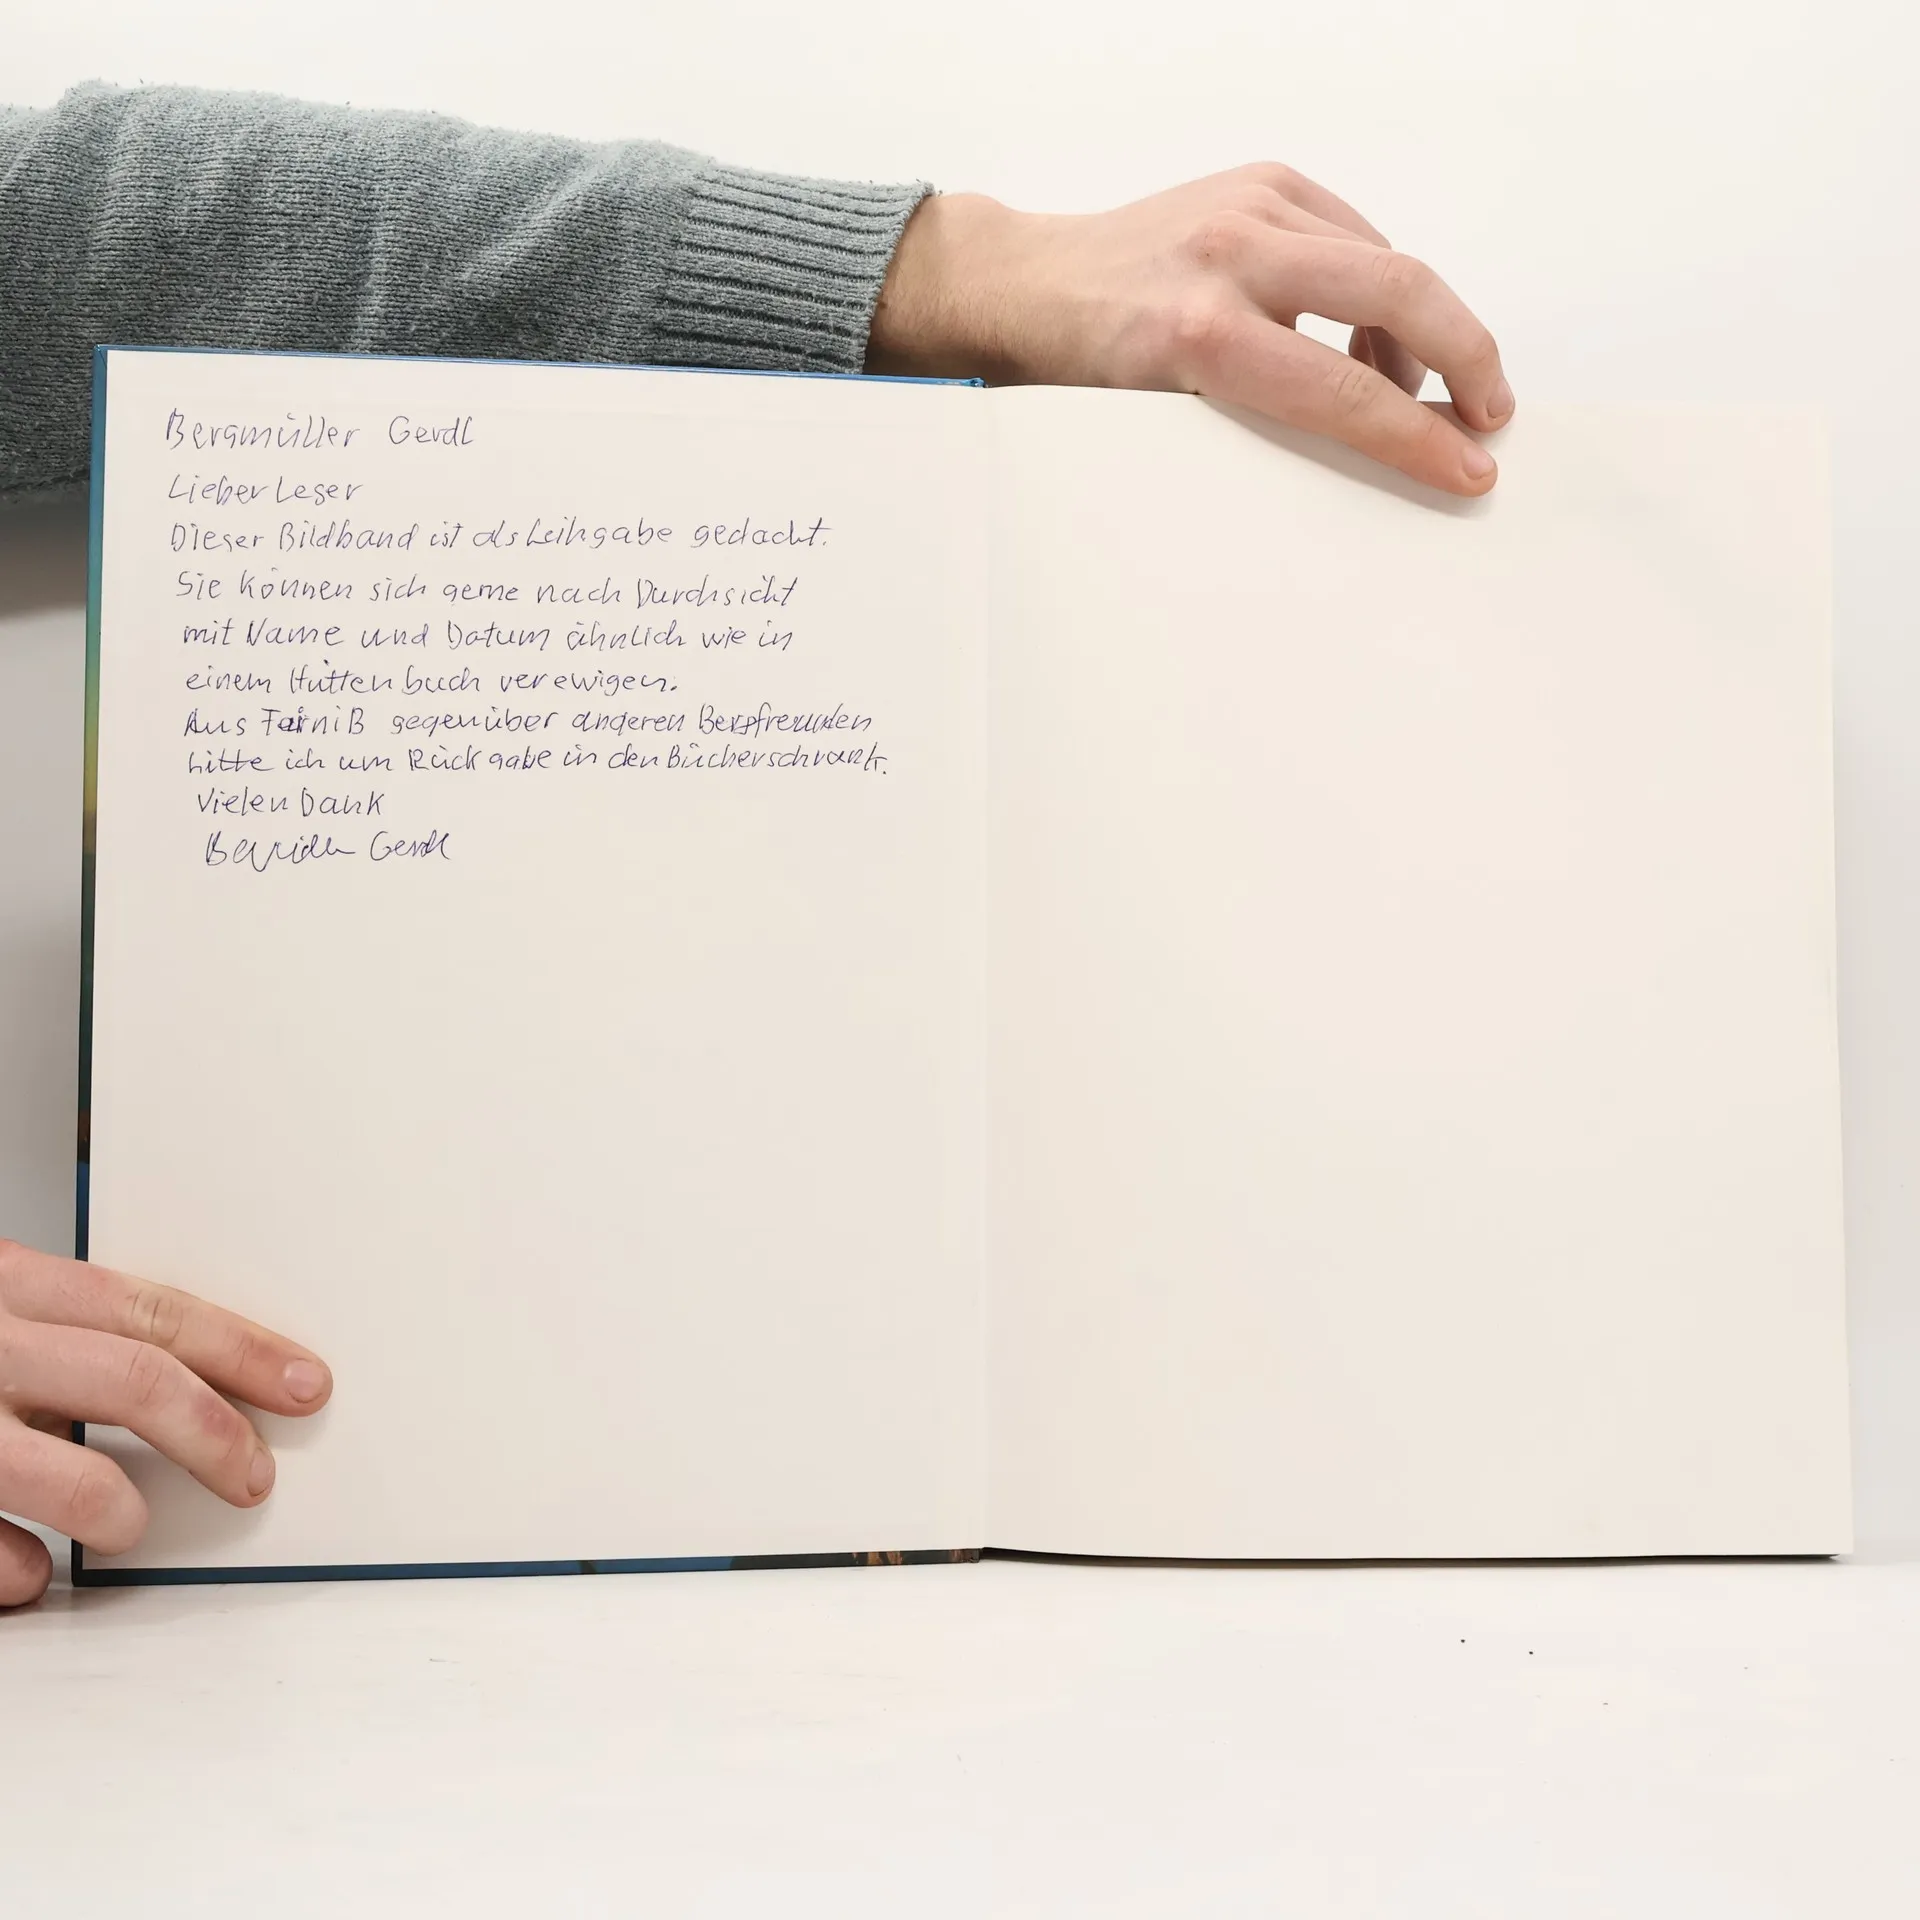 Bergmüller Gerdl
Lieber Leser
Dieser Bildband ist als Leihgabe gedacht.
Sie können sich gerne nach Durchsicht
mit Name und Datum ähnlich wie in
einem Hüttenbuch verewigen.
Aus Fairniß gegenüber anderen Bergfreunden
bitte ich um Rückgabe in den Bücherschrank.
Vielen Dank
Gerdl